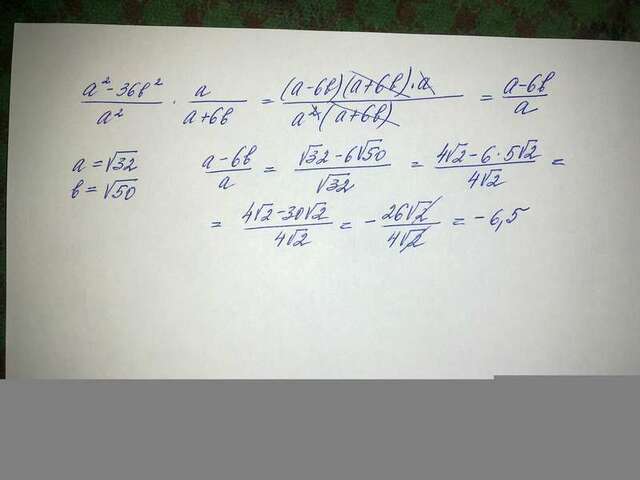 (a² - 36b²)/a² · a/(a+6b) = ((a-6b)(a+6b)·a)/(a²(a+6b)) = (a-6b)/a
a = √32 (a-6b)/a = (√32 - 6√50)/√32 = (4√2 - 6·5√2)/(4√2) =
b = √50
= (4√2 - 30√2)/(4√2) = - 26√2/(4√2) = - 6,5